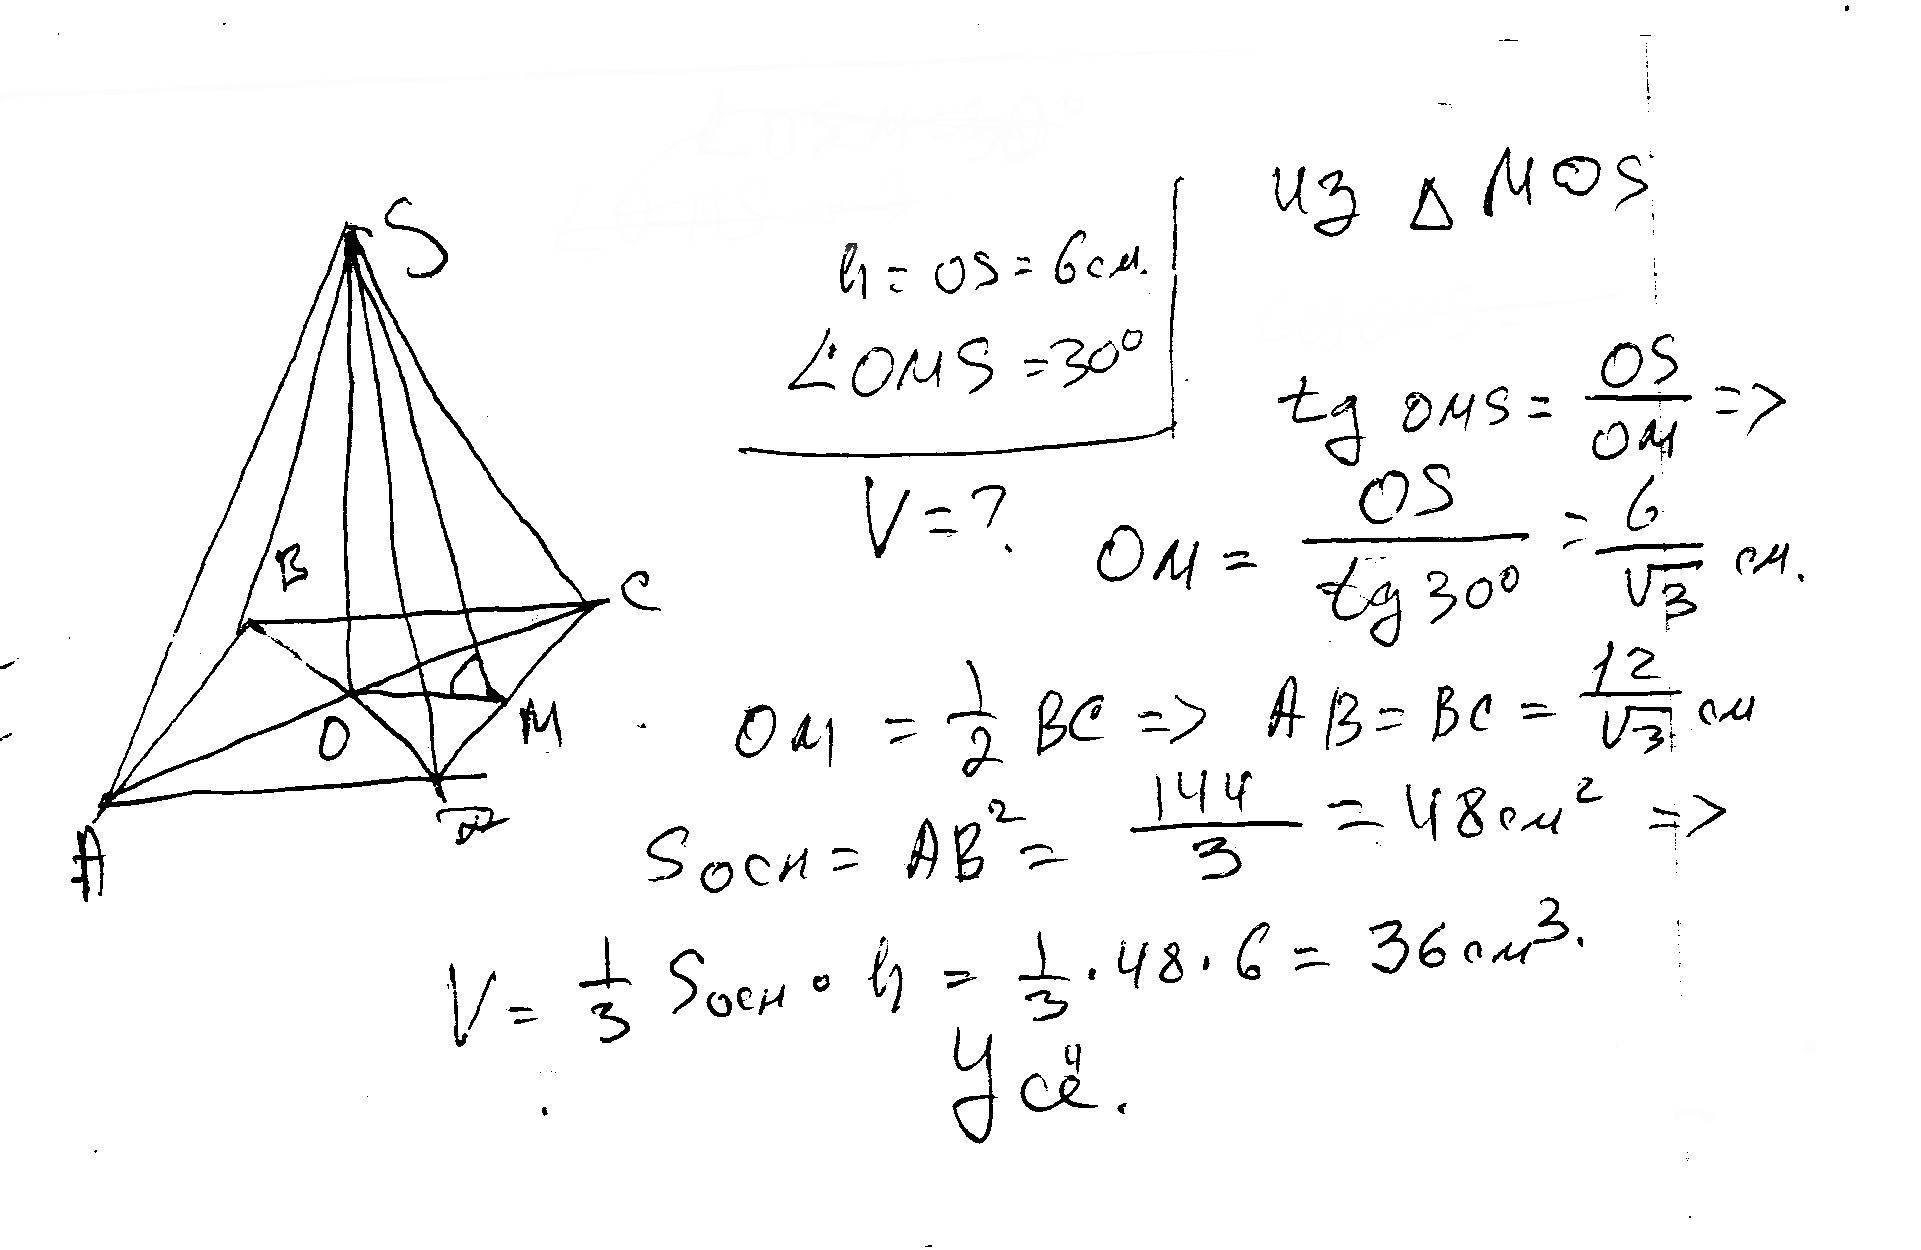 S
B
C
O
M
A
h = OS = 6 см.
∠OMS = 30°
V = ?
из Δ MOS
tg OMS = OS/OM =>
OM = OS/tg 30° = 6/√3 см.
OM = 1/2 BC => AB = BC = 12/√3 см
Sосн = AB² = 144/3 = 48 см² =>
V = 1/3 Sосн · h = 1/3 · 48 · 6 = 36 см³.
Усё.